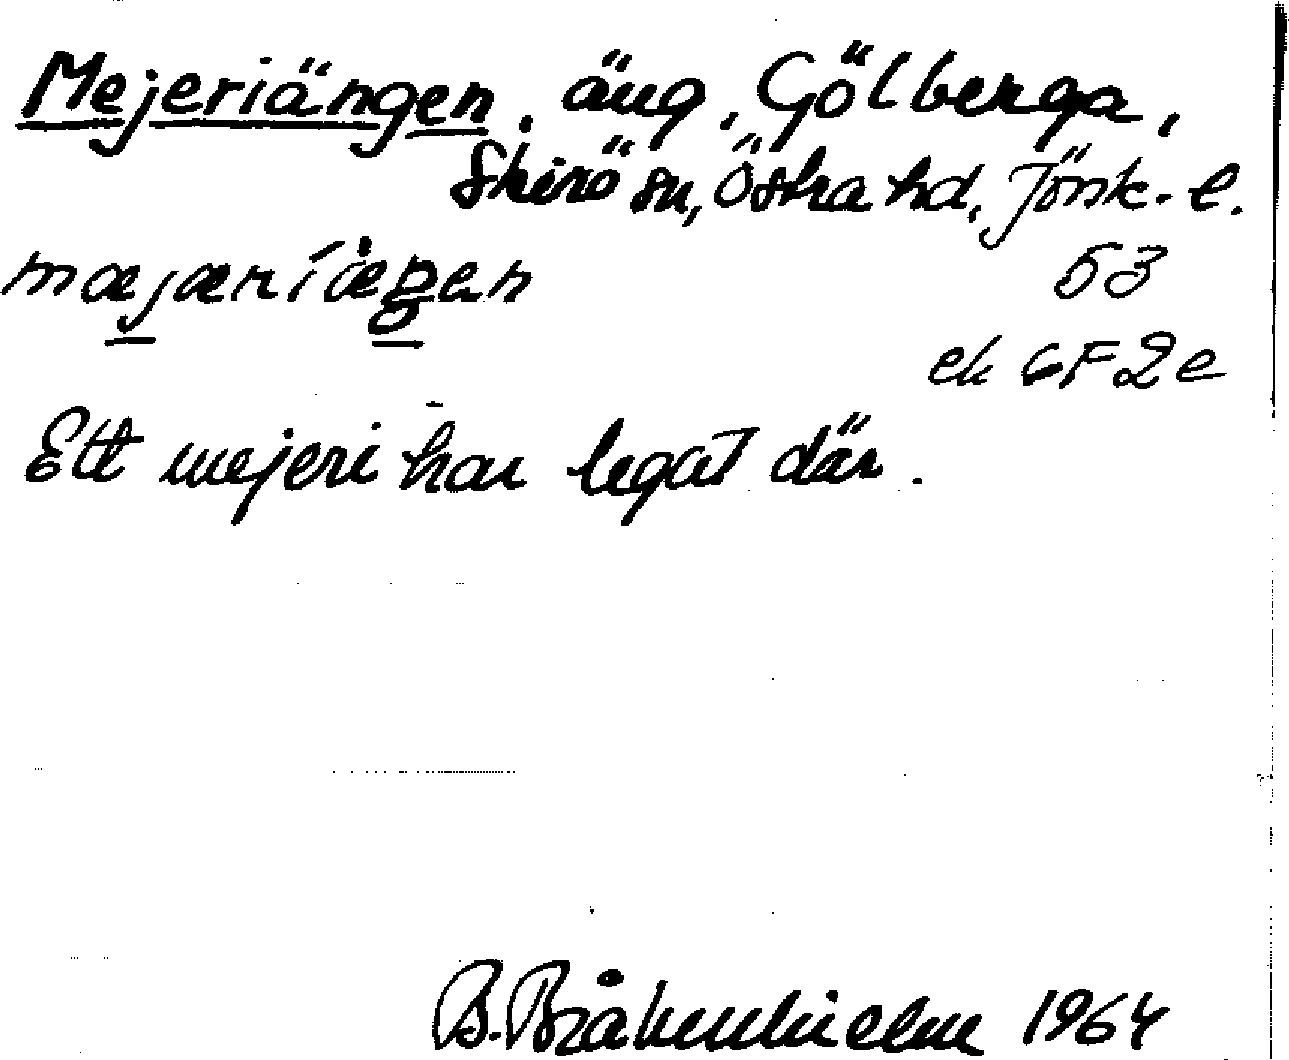 Mejeriängen, äng, Gölberga,
Skirö sn, Östra hd, Jönk. l.
mæjæríæ̀ŋen
53
ek 6F2e
Ett mejeri har legat där.
B. Bråkenhielm 1964